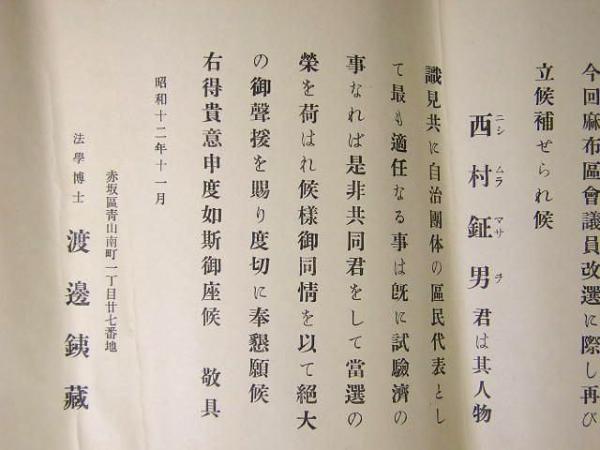 今回麻布區會議員改選に際し再び
立候補せられ候
西村鉦男君は其人物
ニシムラマサヲ
識見共に自治團体の區民代表とし
て最も適任なる事は既に試驗濟の
事なれば是非共同君をして當選の
榮を荷はれ候樣御同情を以て絕大
の御聲援を賜り度切に奉懇願候
右得貴意申度如斯御座候 敬具
昭和十二年十一月
赤坂區青山南町一丁目廿七番地
法學博士 渡邊銕藏